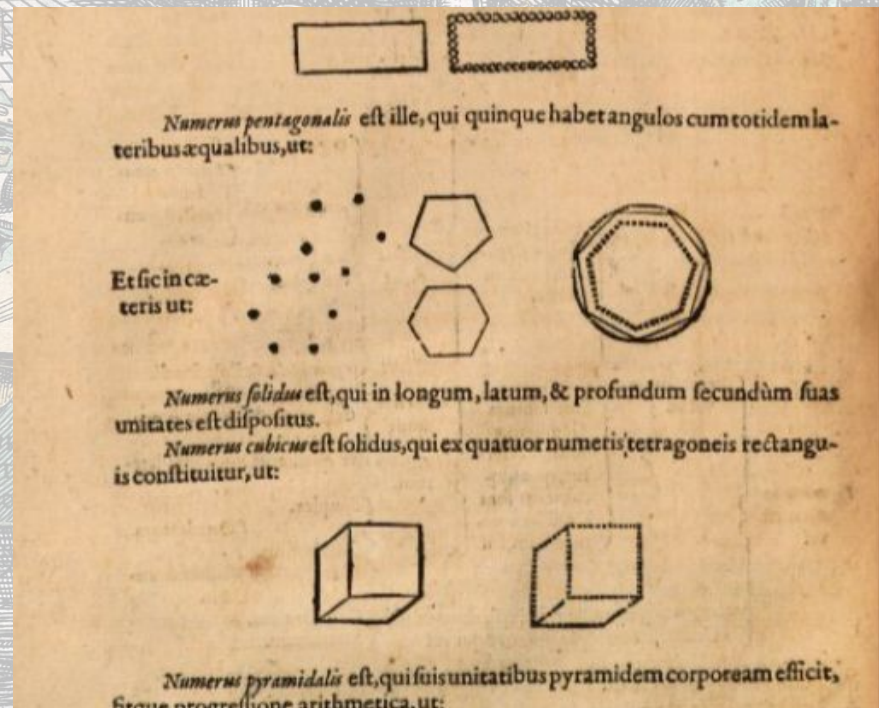 Numerus pentagonalis est ille, qui quinque habet angulos cum totidem la-
teribus æqualibus, ut:
Et sic in cæ-
teris ut:
Numerus solidus est, qui in longum, latum, & profundum secundùm suas
unitates est dispositus.
Numerus cubicus est solidus, qui ex quatuor numeris tetragoneis rectangu-
is constituitur, ut:
Numerus pyramidalis est, qui suis unitatibus pyramidem corpoream efficit,
fitque progressione arithmetica, ut: